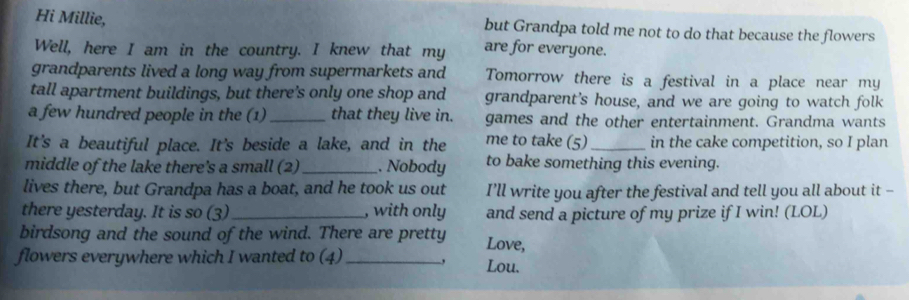 Hi Millie,
Well, here I am in the country. I knew that my
grandparents lived a long way from supermarkets and
tall apartment buildings, but there's only one shop and
a few hundred people in the (1) ______ that they live in.
It's a beautiful place. It's beside a lake, and in the
middle of the lake there's a small (2) ________. Nobody
lives there, but Grandpa has a boat, and he took us out
there yesterday. It is so (3) ______________, with only
birdsong and the sound of the wind. There are pretty
flowers everywhere which I wanted to (4) __________,
but Grandpa told me not to do that because the flowers
are for everyone.
Tomorrow there is a festival in a place near my
grandparent's house, and we are going to watch folk
games and the other entertainment. Grandma wants
me to take (5) ______ in the cake competition, so I plan
to bake something this evening.
I'll write you after the festival and tell you all about it –
and send a picture of my prize if I win! (LOL)
Love,
Lou.